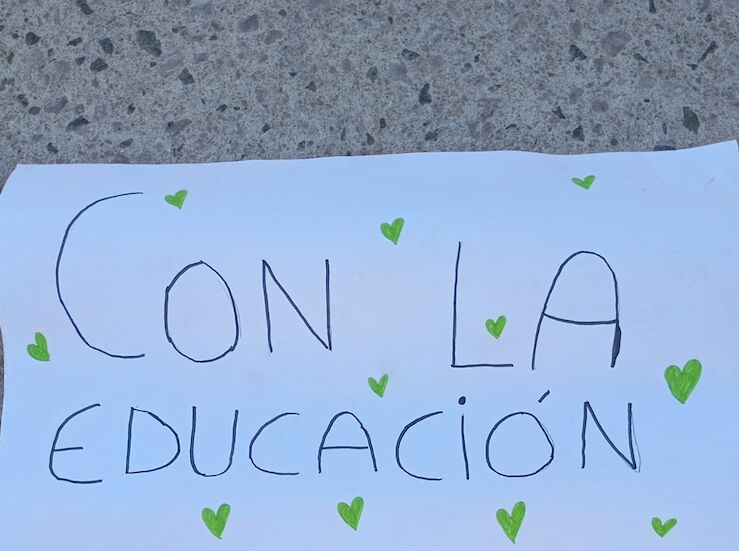 CON LA
EDUCACiÓN